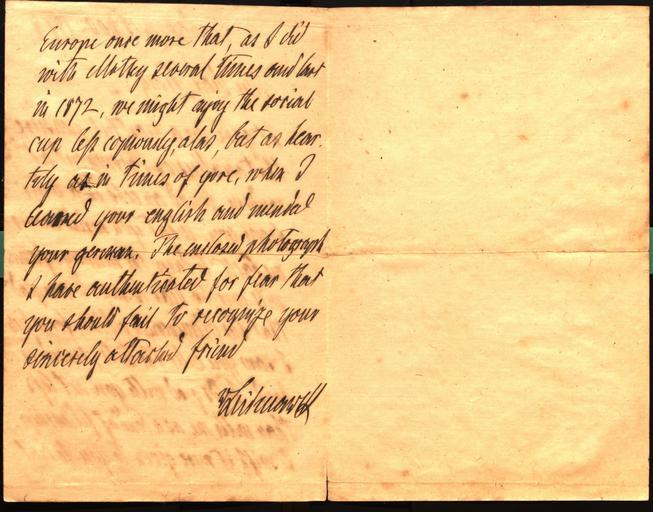 Europe once more that, as I did
with Motley several times and last
in 1872, we might enjoy the social
cup less copiously, alas, but as hear-
tily as in times of yore, when I
learned your english and mended
your german. The enclosed photograph
I have authenticated for fear that
you should fail to recognize your
sincerely attached friend
v Bismarck